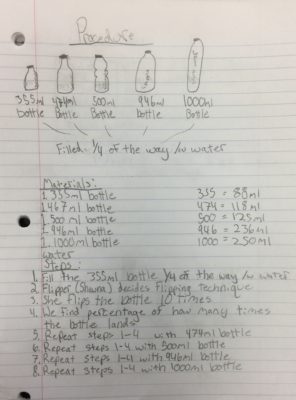 Procedure
355ml 474ml 500ml 946ml 1000ml
bottle Bottle Bottle bottle Bottle
Filled 1/4 of the way /w water
Materials:
1. 355ml bottle 355 = 88ml
1. 467ml bottle 474 = 118ml
1. 500ml bottle 500 = 125ml
1. 946ml bottle 946 = 236ml
1. 1000ml bottle 1000 = 250ml
water
Steps:
1. Fill the 355ml bottle 1/4 of the way /w water
2. Flipper (Shawna) decides flipping technique
3. She flips the bottle 10 times
4. We find percentage of how many times
the bottle lands
5. Repeat steps 1-4 with 474ml bottle
6. Repeat steps 1-4 with 500ml bottle
7. Repeat steps 1-4 with 946ml bottle
8. Repeat steps 1-4 with 1000ml bottle